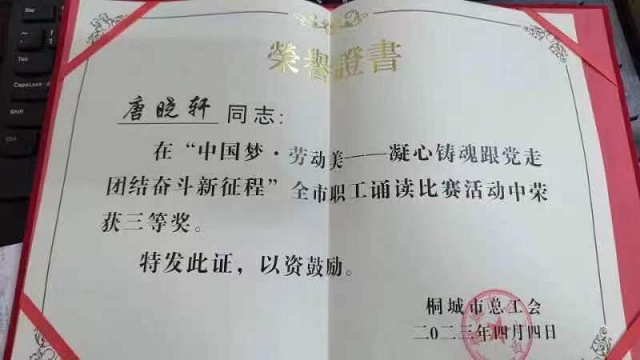 榮譽證書
唐晓轩 同志：
在“中国梦·劳动美——凝心铸魂跟党走
团结奋斗新征程”全市职工诵读比赛活动中荣
获三等奖。
特发此证，以资鼓励。
桐城市总工会
二〇二三年四月四日
Tab
CapsLock
Shift
Ctrl